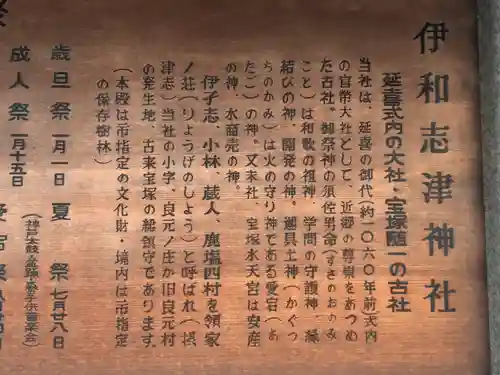 伊和志津神社
延喜式内の大社・宝塚随一の古社
当社は、延喜の御代(約一〇六〇年前)式内
の官幣大社として、近郷の尊崇をあつめ
た古社。御祭神の須佐男命(すさのおのみ
こと)は和歌の祖神、学問の守護神、縁
結びの神、開発の神。迦具土神(かぐつ
ちのかみ)は火の守り神である愛宕(あ
たご)の神。又末社、宝塚水天宮は安産
の神、水商売の神。
伊孑志、小林、蔵人、鹿塩四村を領家
ノ荘(りょうげのしょう)と呼ばれ(摂
津志)当社の小字、良元ノ庄が旧良元村
の発生地、古来宝塚の総鎮守であります。
(本殿は市指定の文化財・境内は市指定
の保存樹林)
祭
歳旦祭 一月一日 夏祭 七月廿八日
(神戸太鼓 盆踊 子供音楽会)
成人祭 一月十五日